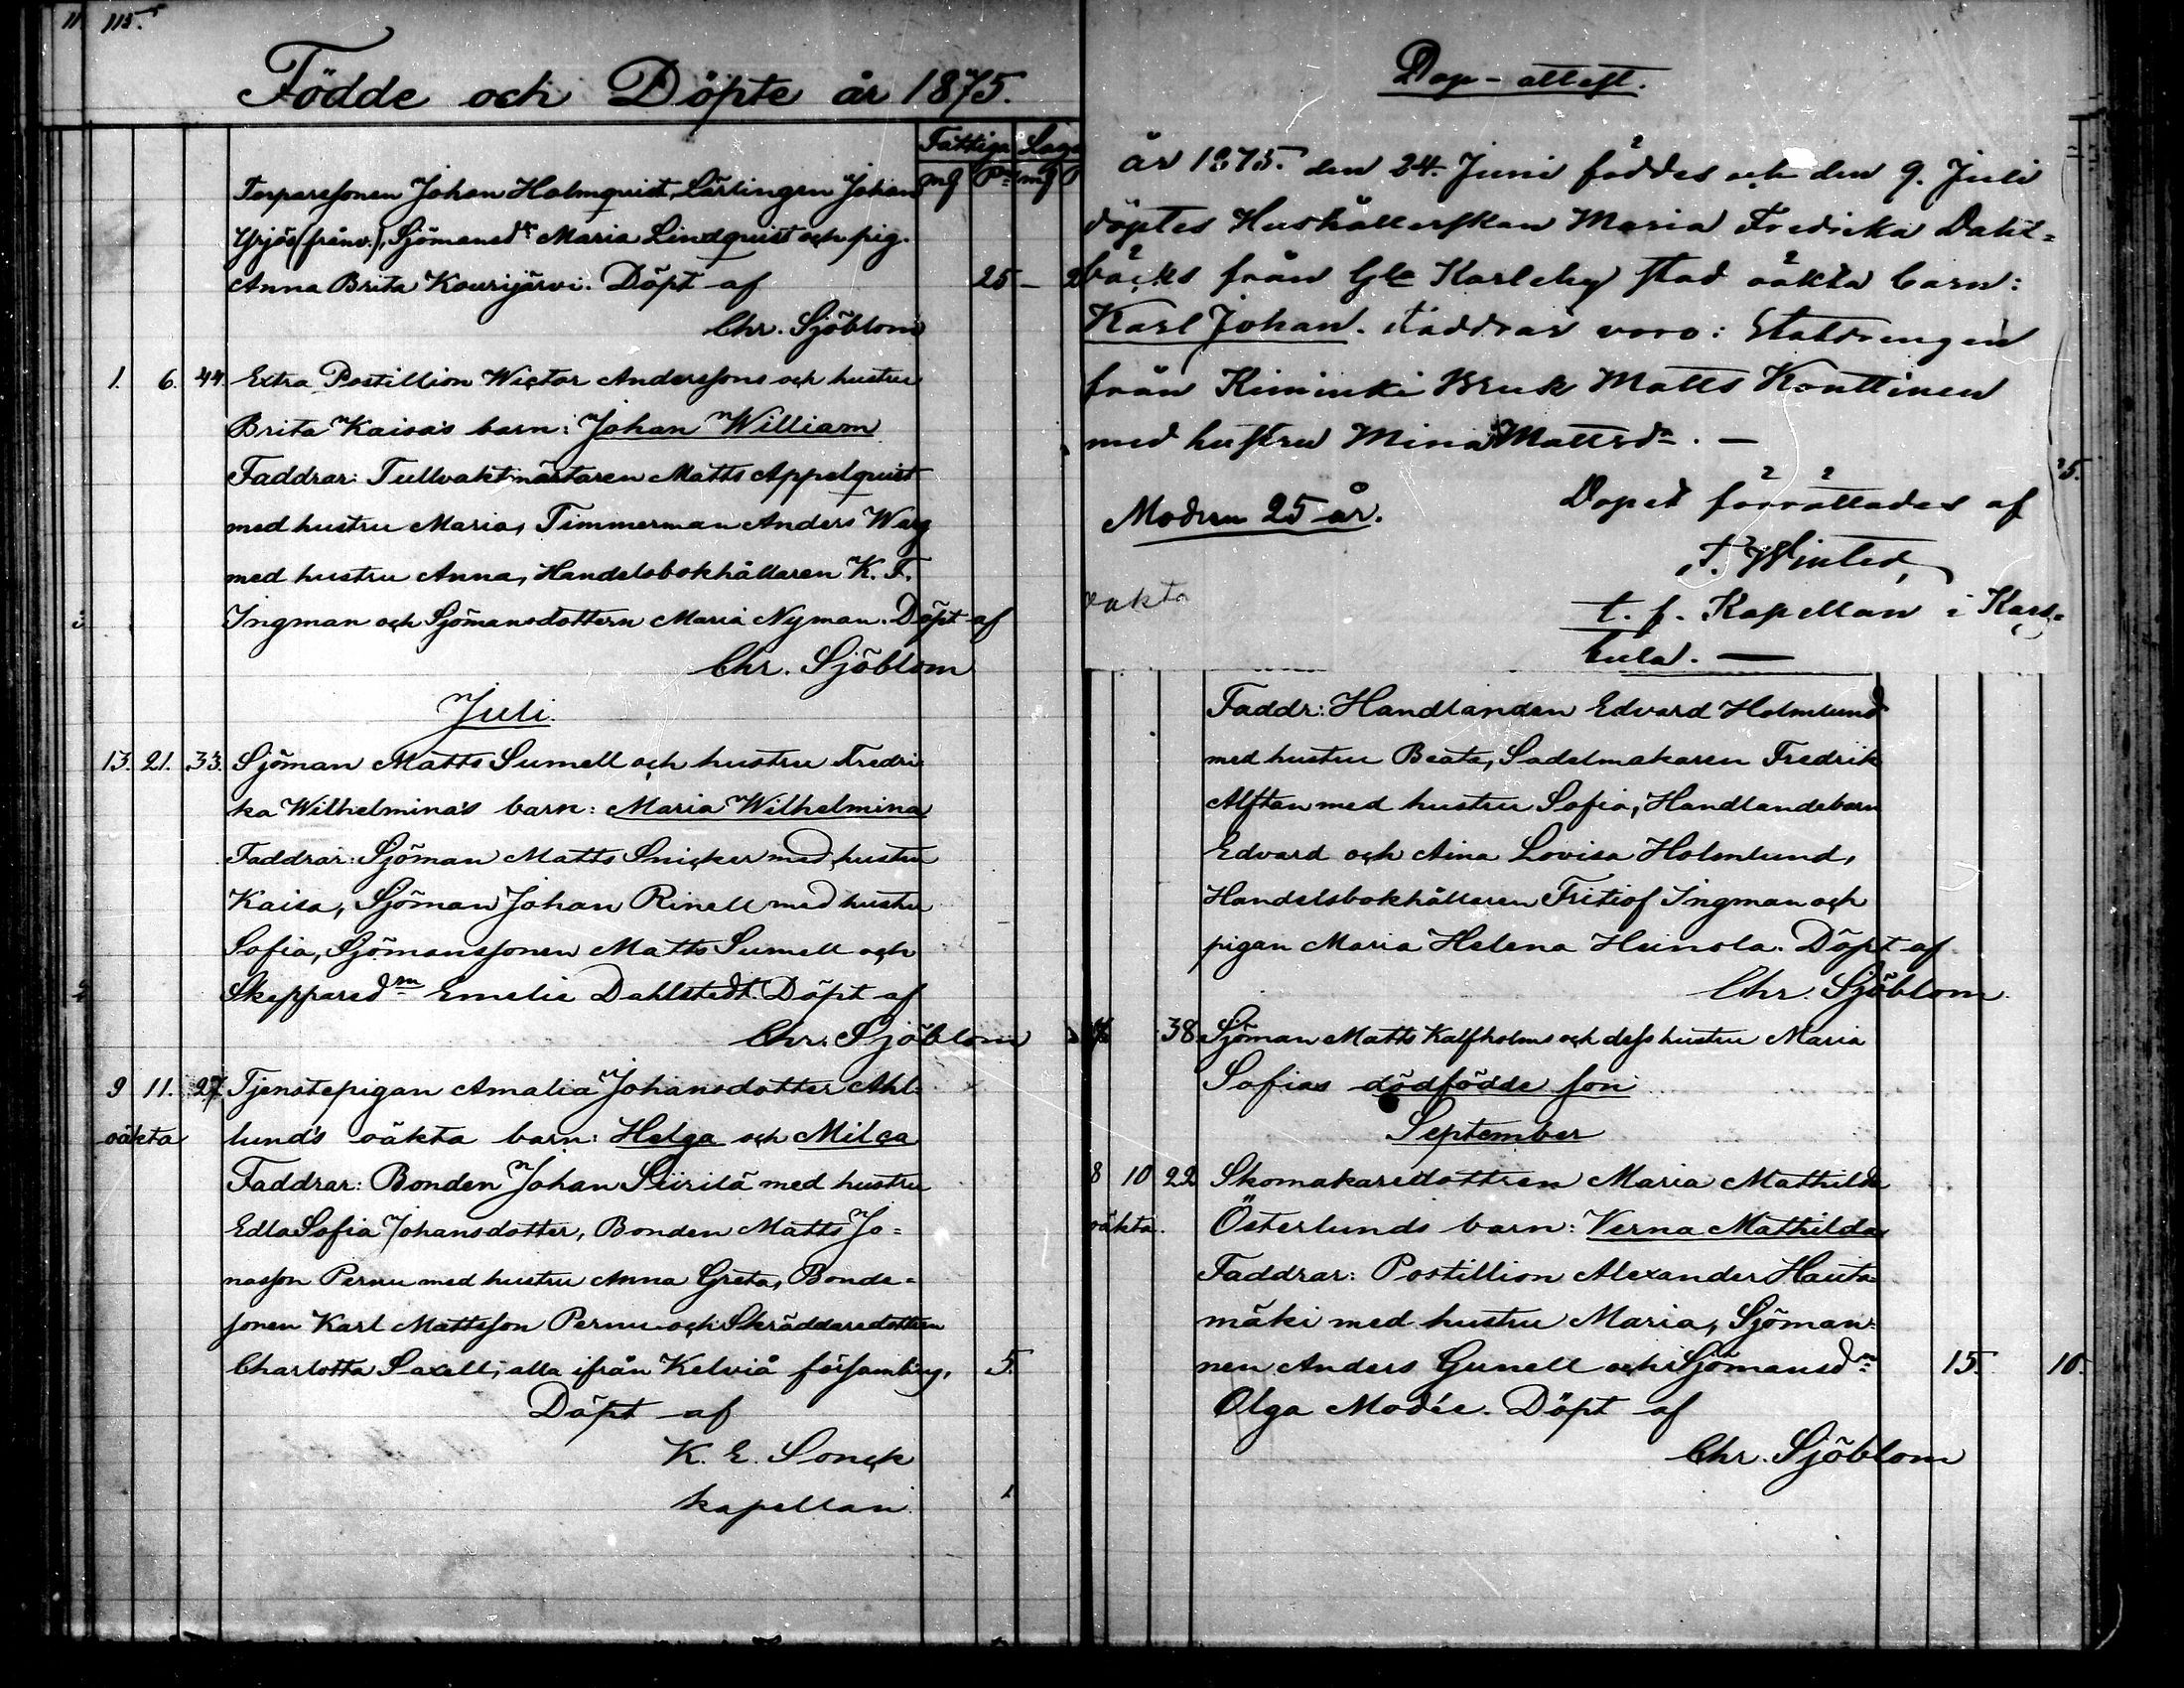 115.
Födde och Döpte år 1875.
Fattiga
mf
Torparesonen Johan Holmquist, Lärlingen Johan
Yrjös (frånv.), Sjömansdr Maria Lindquist och pig.
Anna Brita Kourijärvi. Döpt af 25 –
Chr. Sjöblom
1. 6. 44. Extra Postillion Wictor Anderssons och hustru
Brita Kaisa's barn: Johan William
Faddrar: Tullvaktmästaren Matts Appelquist
med hustru Maria, Timmerman Anders Warg
med hustru Anna, Handelsbokhållaren K. F.
Ingman och Sjömansdottern Maria Nyman. Döpt af
Chr. Sjöblom
Juli.
13. 21. 33. Sjöman Matts Sumell och hustru Fredri
ka Wilhelmina's barn: Maria Wilhelmina
Faddrar: Sjöman Matts Snicker med hustru
Kaisa, Sjöman Johan Rinell med hustru
Sofia, Sjömanssonen Matts Sumell och
Skepparedrn Emelie Dahlstedt. Döpt af
Chr. Sjöblom
9 11. 27. Tjenstepigan Amalia Johansdotter Ahl-
oäkta lund's oäkta barn: Helga och Milca
Faddrar: Bonden Johan Siirilä med hustru
Edla Sofia Johansdotter, Bonden Matts Jo=
nasson Pernu med hustru Anna Greta, Bonde=
sonen Karl Mattsson Pernu och Skräddaredottren
Charlotta Saxell; alla ifrån Kelviå församling. 5.
Döpt af
K. E. Sonck
kapellan
Dop-attest.
år 1875. den 24. Juni föddes och den 9. Juli
döptes Hushållerskan Maria Fredrika Dahl=
bäcks från Gla Karleby stad oäkta barn:
Karl Johan. Faddrar voro: Staldrengen
från Kiminki Bruk Matts Konttinen
med hustru Mina Mattsdr. —
Modren 25 år.
Dopet förrättades af
t. f. Kapellan i Kars=
tula. —
oakta
Faddr: Handlanden Edvard Holmlund
med hustru Beata, Sadelmakaren Fredrik
Alftan med hustru Sofia, Handlandebarn
Edvard och Aina Lovisa Holmlund,
Handelsbokhållaren Fritiof Ingman och
pigan Maria Helena Heinola. Döpt af
Chr. Sjöblom.
38 Sjöman Matts Kalfholms och dess hustru Maria
Sofias dödfödde son
September
8 10 22 Skomakaredottren Maria Mathilda
oäkta. Österlunds barn: Verna Mathilda
Faddrar: Postillion Alexander Hauta=
mäki med hustru Maria, Sjöman=
nen Anders Gunell och Sjömansdrn 15. 10.
Olga Modée. Döpt af
Chr. Sjöblom